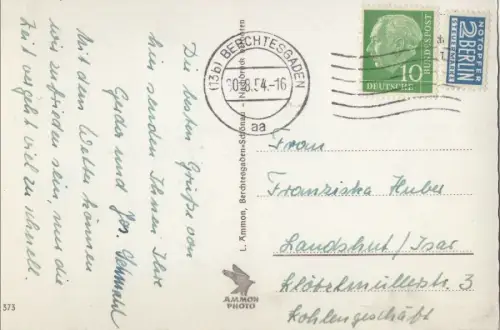 Die besten Grüße von
hier senden Ihnen Ihre
Gerda und Jos.
Mit dem Wetter können
wir zufrieden sein, nur die
Zeit vergeht viel zu schnell.
373
L. Ammon, Berchtesgaden-Schönau - Nachdruck verboten
AMMON
PHOTO
(13b) BERCHTESGADEN
30.8.54.-16
aa
10
DEUTSCHE
BUNDESPOST
NOTOPFER
2 BERLIN
STEUERMARKE
Frau
Franziska Huber
Landshut/Isar
Klötzlmüllerstr. 3
Kohlengeschäft